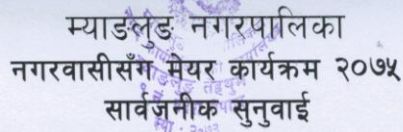 म्याङलुङ नगरपालिका
नगरवासीसँग मेयर कार्यक्रम २०७५
सार्वजनीक सुनुवाई